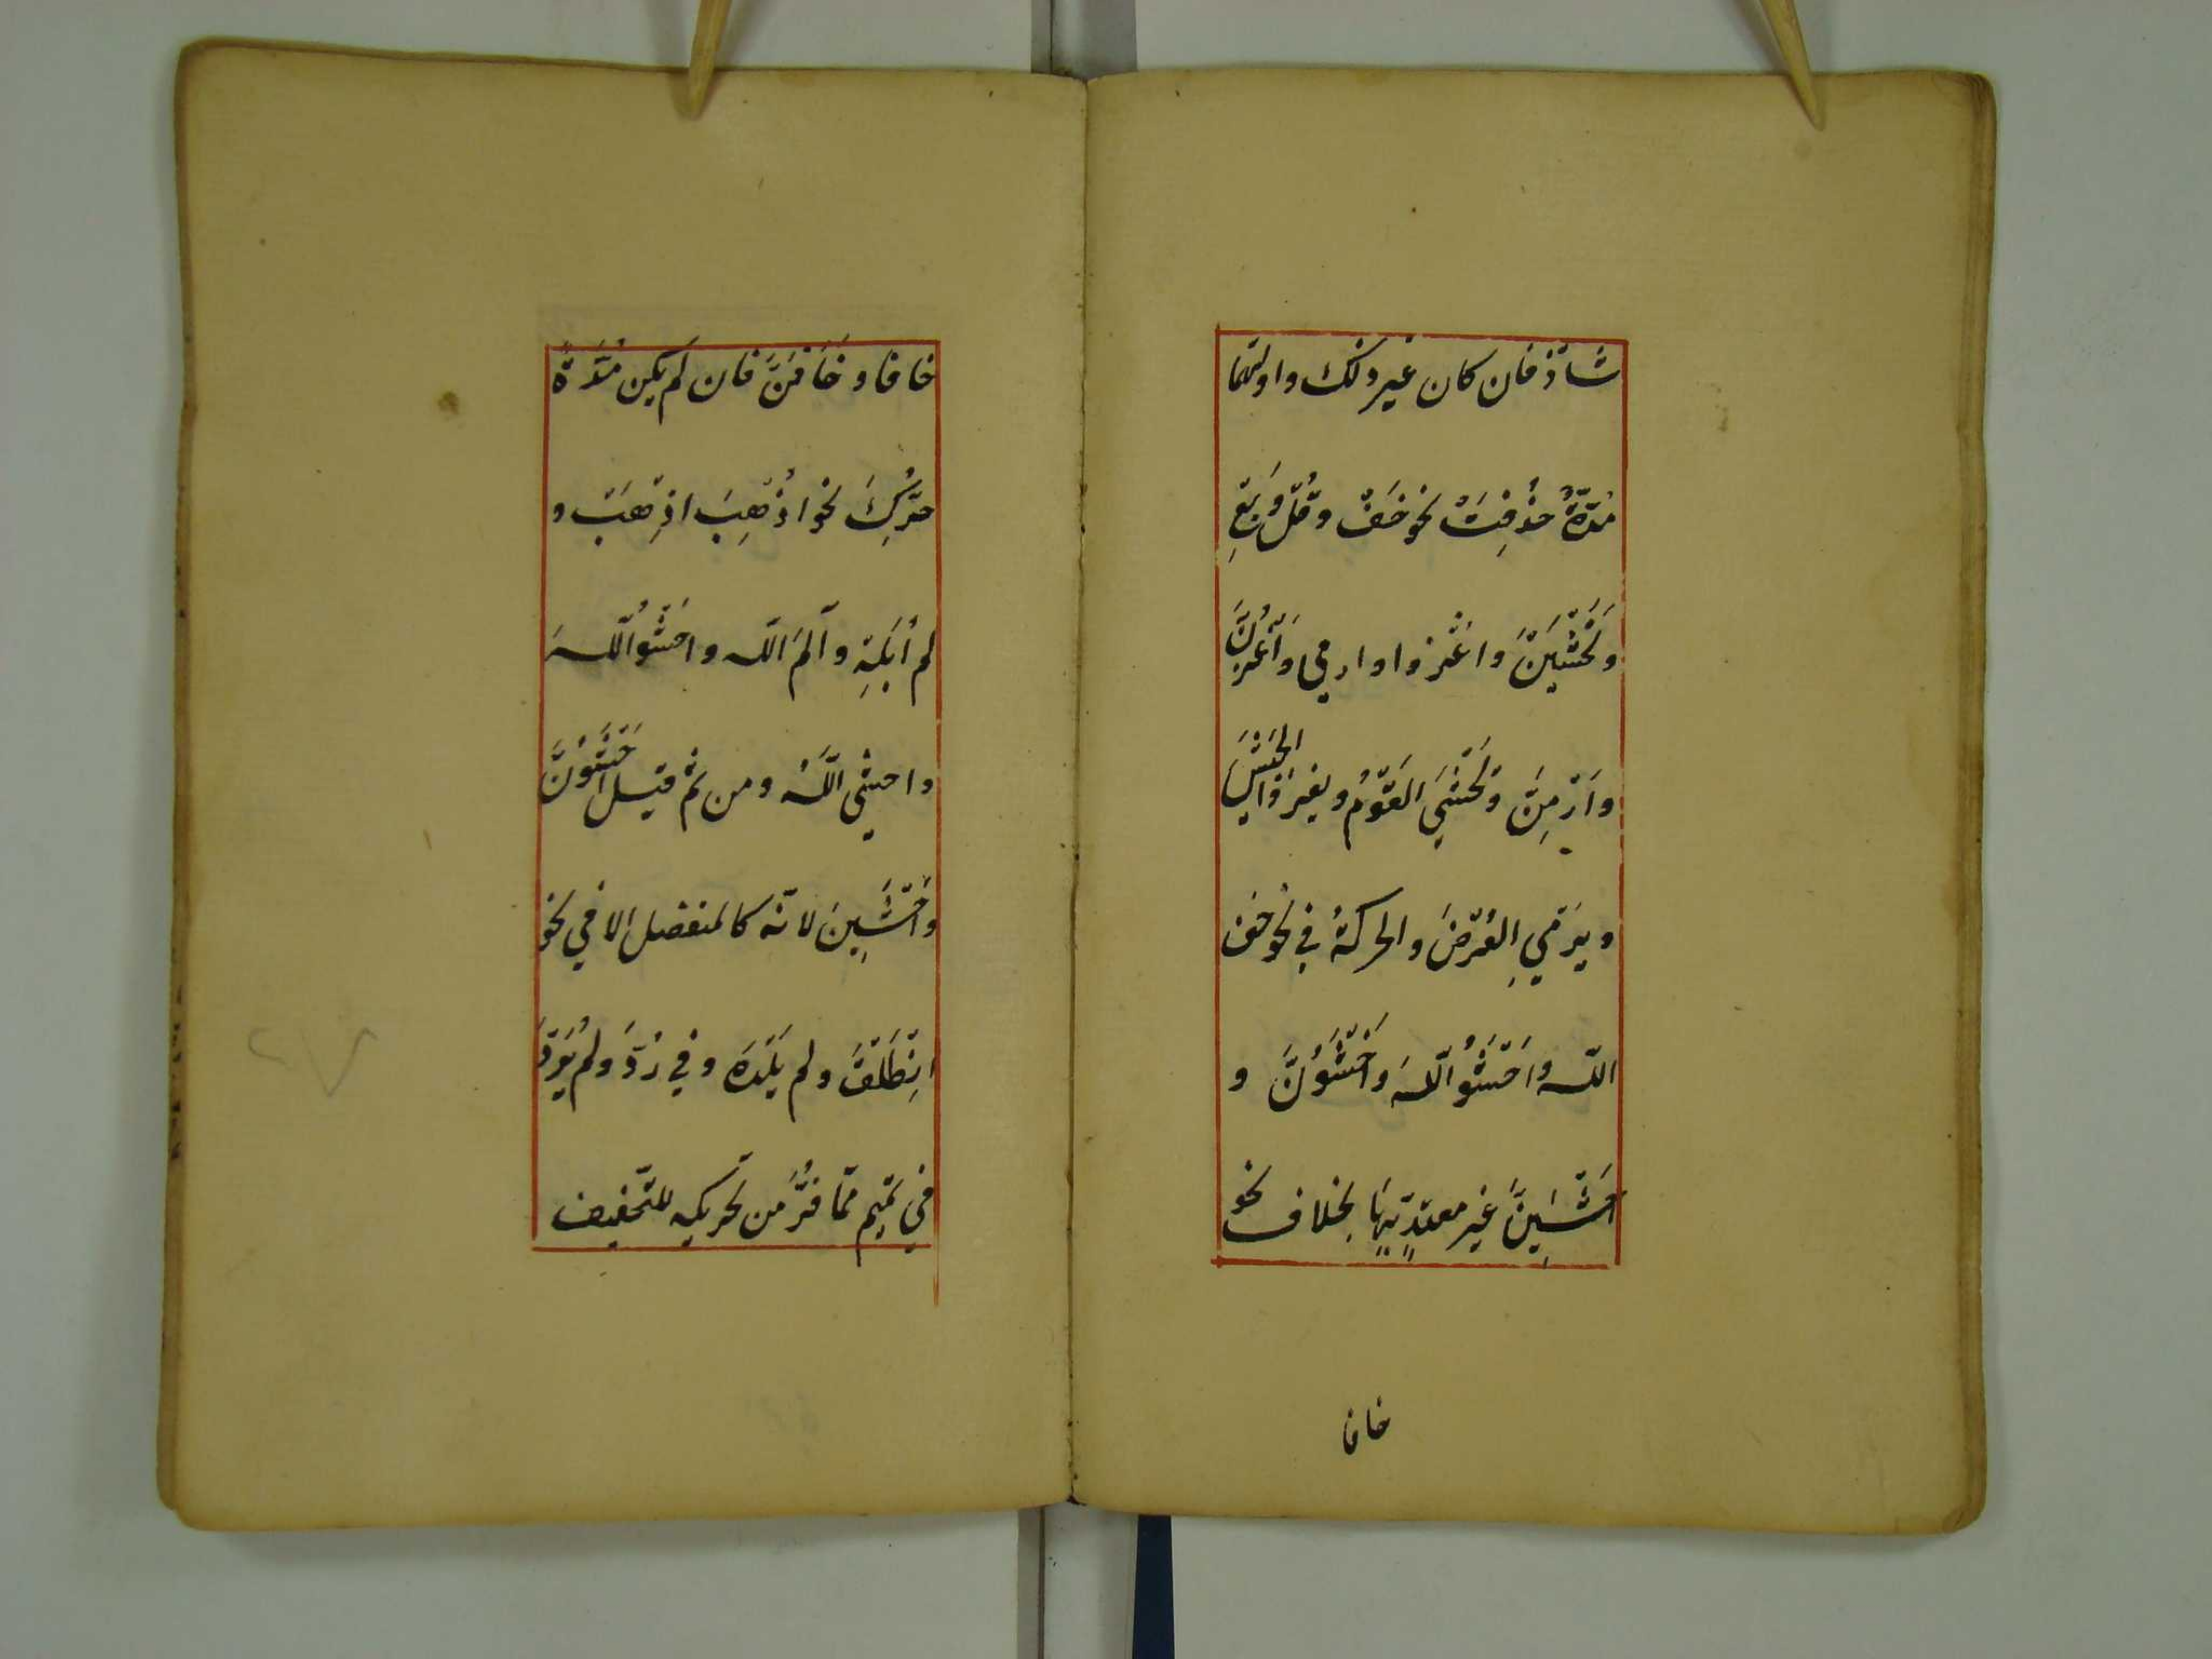 شاذّ فان كان غير ذلك واولهما
مُدّةٌ حُذِفَتْ نحو خَفْ وقُلْ وبِعْ
وتَخْشَيْنَ واغْزوا وارمي واَغْزُنَّ
واَرْمِنَّ وتَخْشَي القَوْمُ ويغزوا الجَيْشَ
ويَرْمِي الغَرَضَ والحركةُ في نحو خف
اللّه واخْشَوُا اللّهَ واخْشَوُنَّ و
اخْشَيِنَّ غير معتدٍّ بِهَا بخلاف نحو
خافا
خافا وخَافَنَّ فان لم يكن مُدَّةً
حُرِّكَ نحو اذْهَبِ اذْهَبْ و
لم أُبَلِهِ والَمَ اللّه واخْشَوُا اللّهَ
واخشَيِ اللّهَ ومن ثَم قيل اخْشَوُنَّ
واخْشَيِنَ لانّه كالمنفصل الا في نحو
انْطَلْقَ ولم يَلْدَهُ وفي رُدَّ ولم يَرُدَّ
في تميم ممّا فُرَّ من تحريكه للتّخفيف